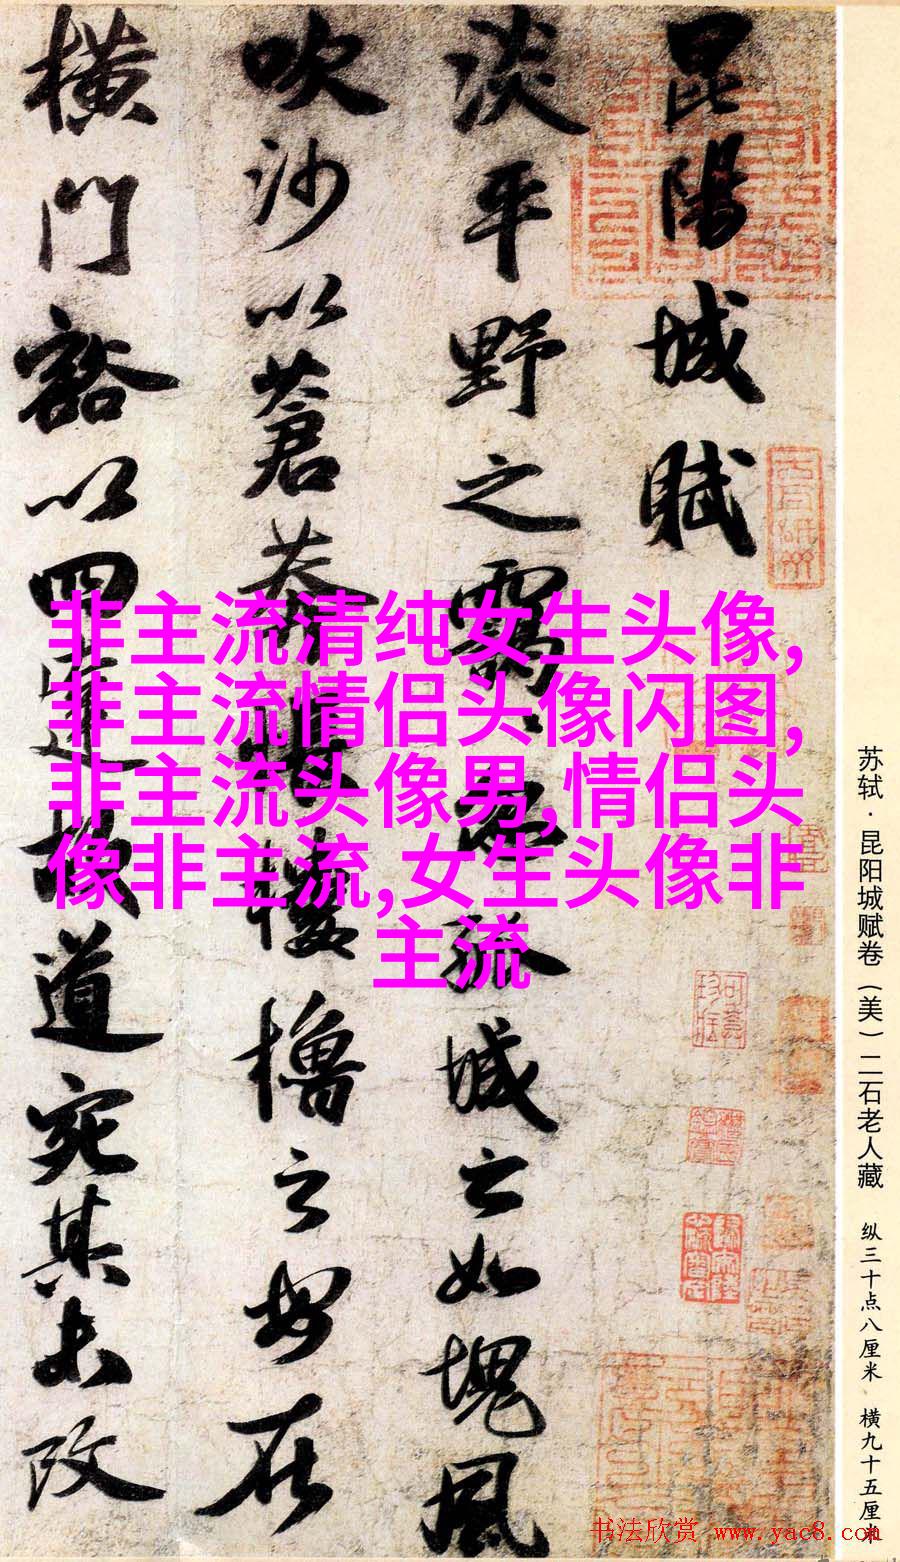 昆陽城賦
淡平野之靄靄忽孤城之如塊風
吹沙以蒼莽悵樓櫓之安在
橫門豁以四達故道宛其未改
非主流清纯女生头像,
非主流情侣头像闪图,
非主流头像男,情侣头
像非主流,女生头像非
主流
苏轼·昆阳城赋卷(美)二石老人藏 纵三十点八厘米 横九十五厘米
书法欣赏 www.yac8.com